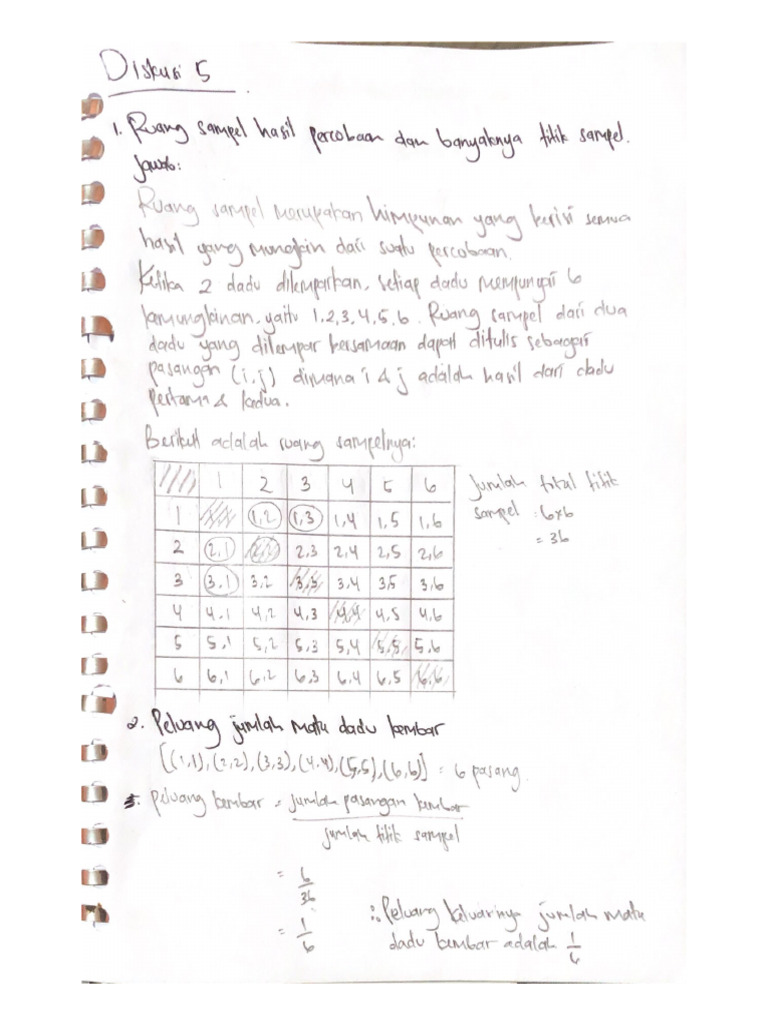 Diskusi 5
1. Ruang sampel hasil percobaan dan banyaknya titik sampel.
Jawab:
Ruang sampel merupakan himpunan yang berisi semua
hasil yang mungkin dari suatu percobaan.
Ketika 2 dadu dilemparkan, setiap dadu mempunyai 6
kemungkinan, yaitu 1,2,3,4,5,6. Ruang sampel dari dua
dadu yang dilempar bersamaan dapat ditulis sebagai
pasangan (i,j) dimana i & j adalah hasil dari dadu
pertama & kedua.
Berikut adalah ruang sampelnya:
1 2 3 4 5 6
1 1,2 1,3 1,4 1,5 1,6
2 2,1 2,3 2,4 2,5 2,6
3 3,1 3,2 3,3 3,4 3,5 3,6
4 4,1 4,2 4,3 4,4 4,5 4,6
5 5,1 5,2 5,3 5,4 5,5 5,6
6 6,1 6,2 6,3 6,4 6,5 6,6
Jumlah total titik
sampel : 6x6
= 36
2. Peluang jumlah mata dadu kembar
[(1,1), (2,2), (3,3), (4,4), (5,5), (6,6)] = 6 pasang.
Peluang kembar = jumlah pasangan kembar
jumlah titik sampel
= 6
36
= 1
6
∴ Peluang keluarnya jumlah mata
dadu kembar adalah 1
6